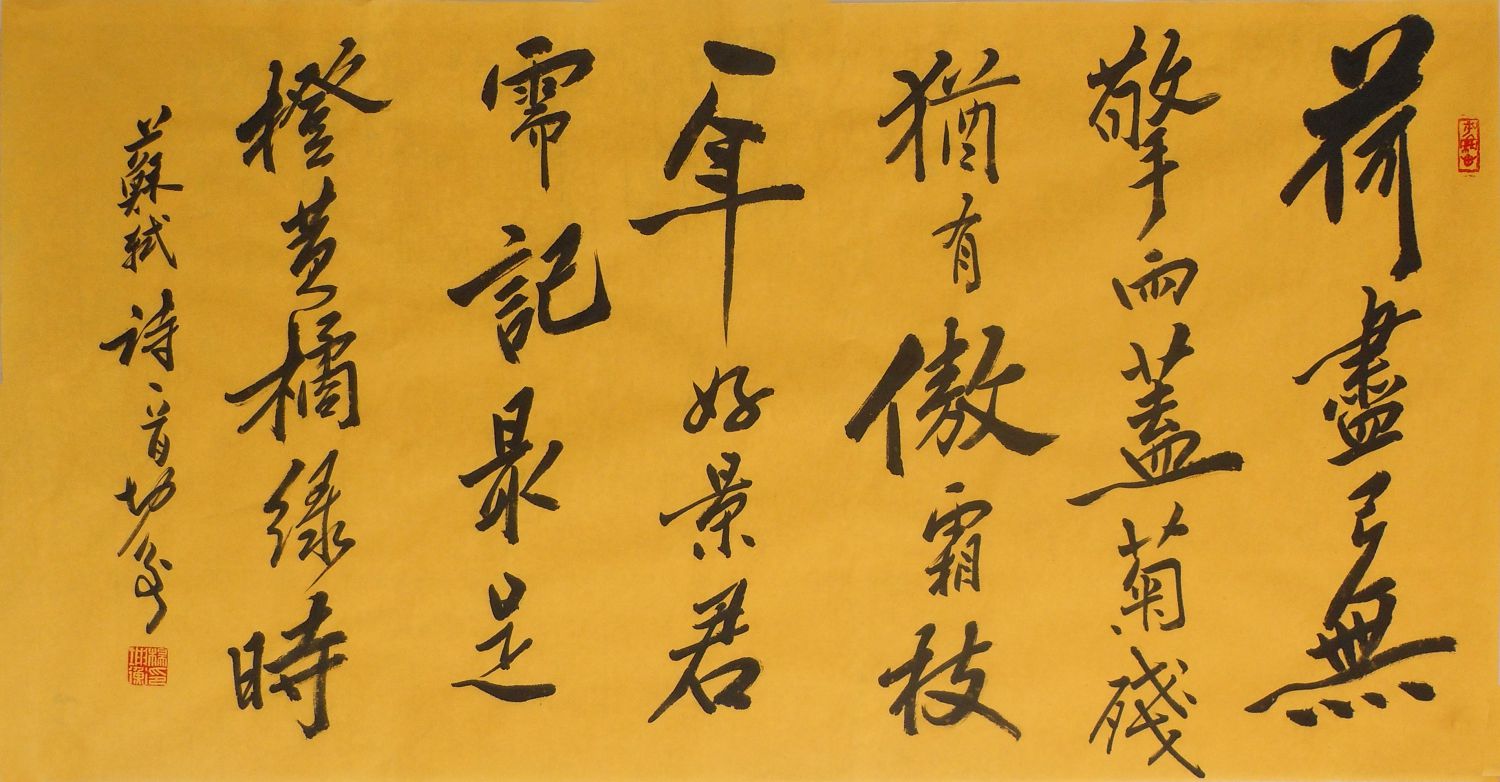 荷盡已無
擎雨蓋菊殘
猶有傲霜枝
一年好景君
需記最是
橙黃橘綠時
蘇軾詩一首